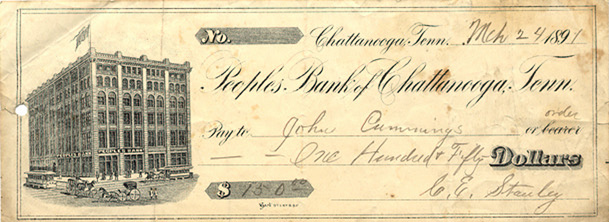 No.
Chattanooga, Tenn. Mch 24 1891
Peoples Bank of Chattanooga, Tenn.
order
Pay to John Cummings or bearer
One Hundred & Fifty Dollars
PEOPLES BANK
$ 150.00
C. E. Stanley